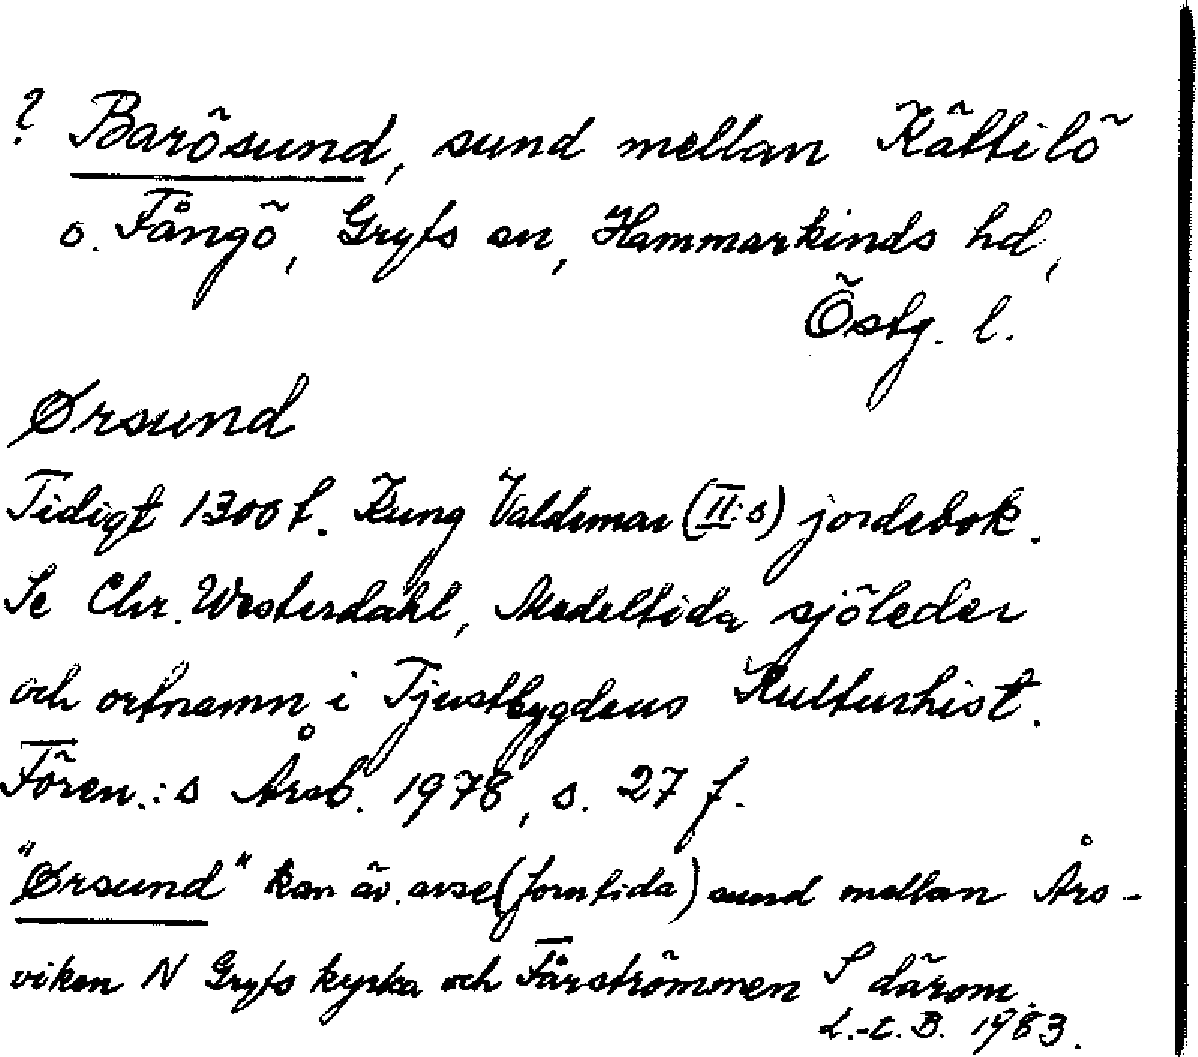 ? Barösund, sund mellan Kättilö
o. Fångö, Gryts sn, Hammarkinds hd,
Östg. l.
Ørsund
Tidigt 1300 t. Kung Valdemar (II:s) jordebok.
Se Chr. Westerdahl, Medeltida sjöleder
och ortnamn i Tjustbygdens Kulturhist.
Fören.:s Årsb. 1978, s. 27 f.
"Ørsund" kan äv. avse (forntida) sund mellan Års-
viken N Gryts kyrka och Fårströmmen S därom.
L.-E. B. 1983.